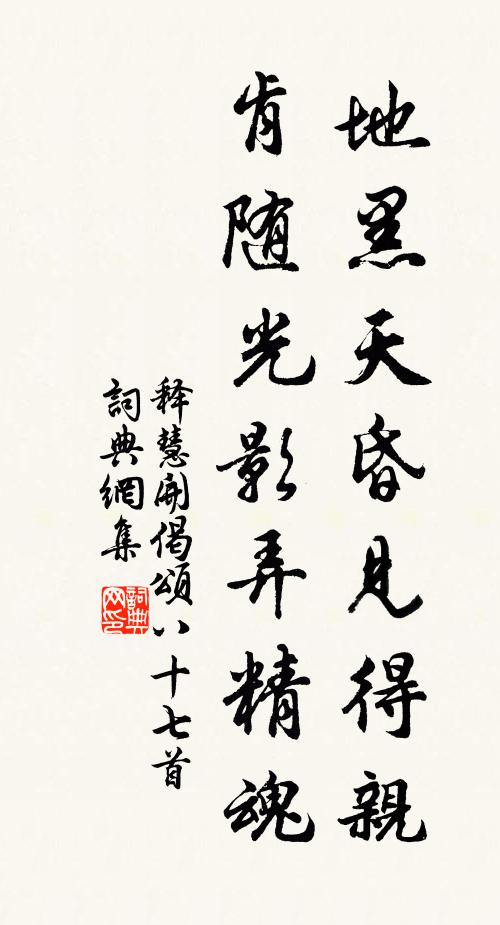 地黑天昏見得親
肯随光影弄精魂
释慧開偈頌八十七首
詞典網集
詞典网印